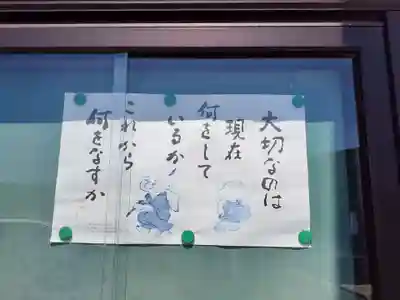 大切なのは
現在
何をして
いるか!
これから
何をなすか